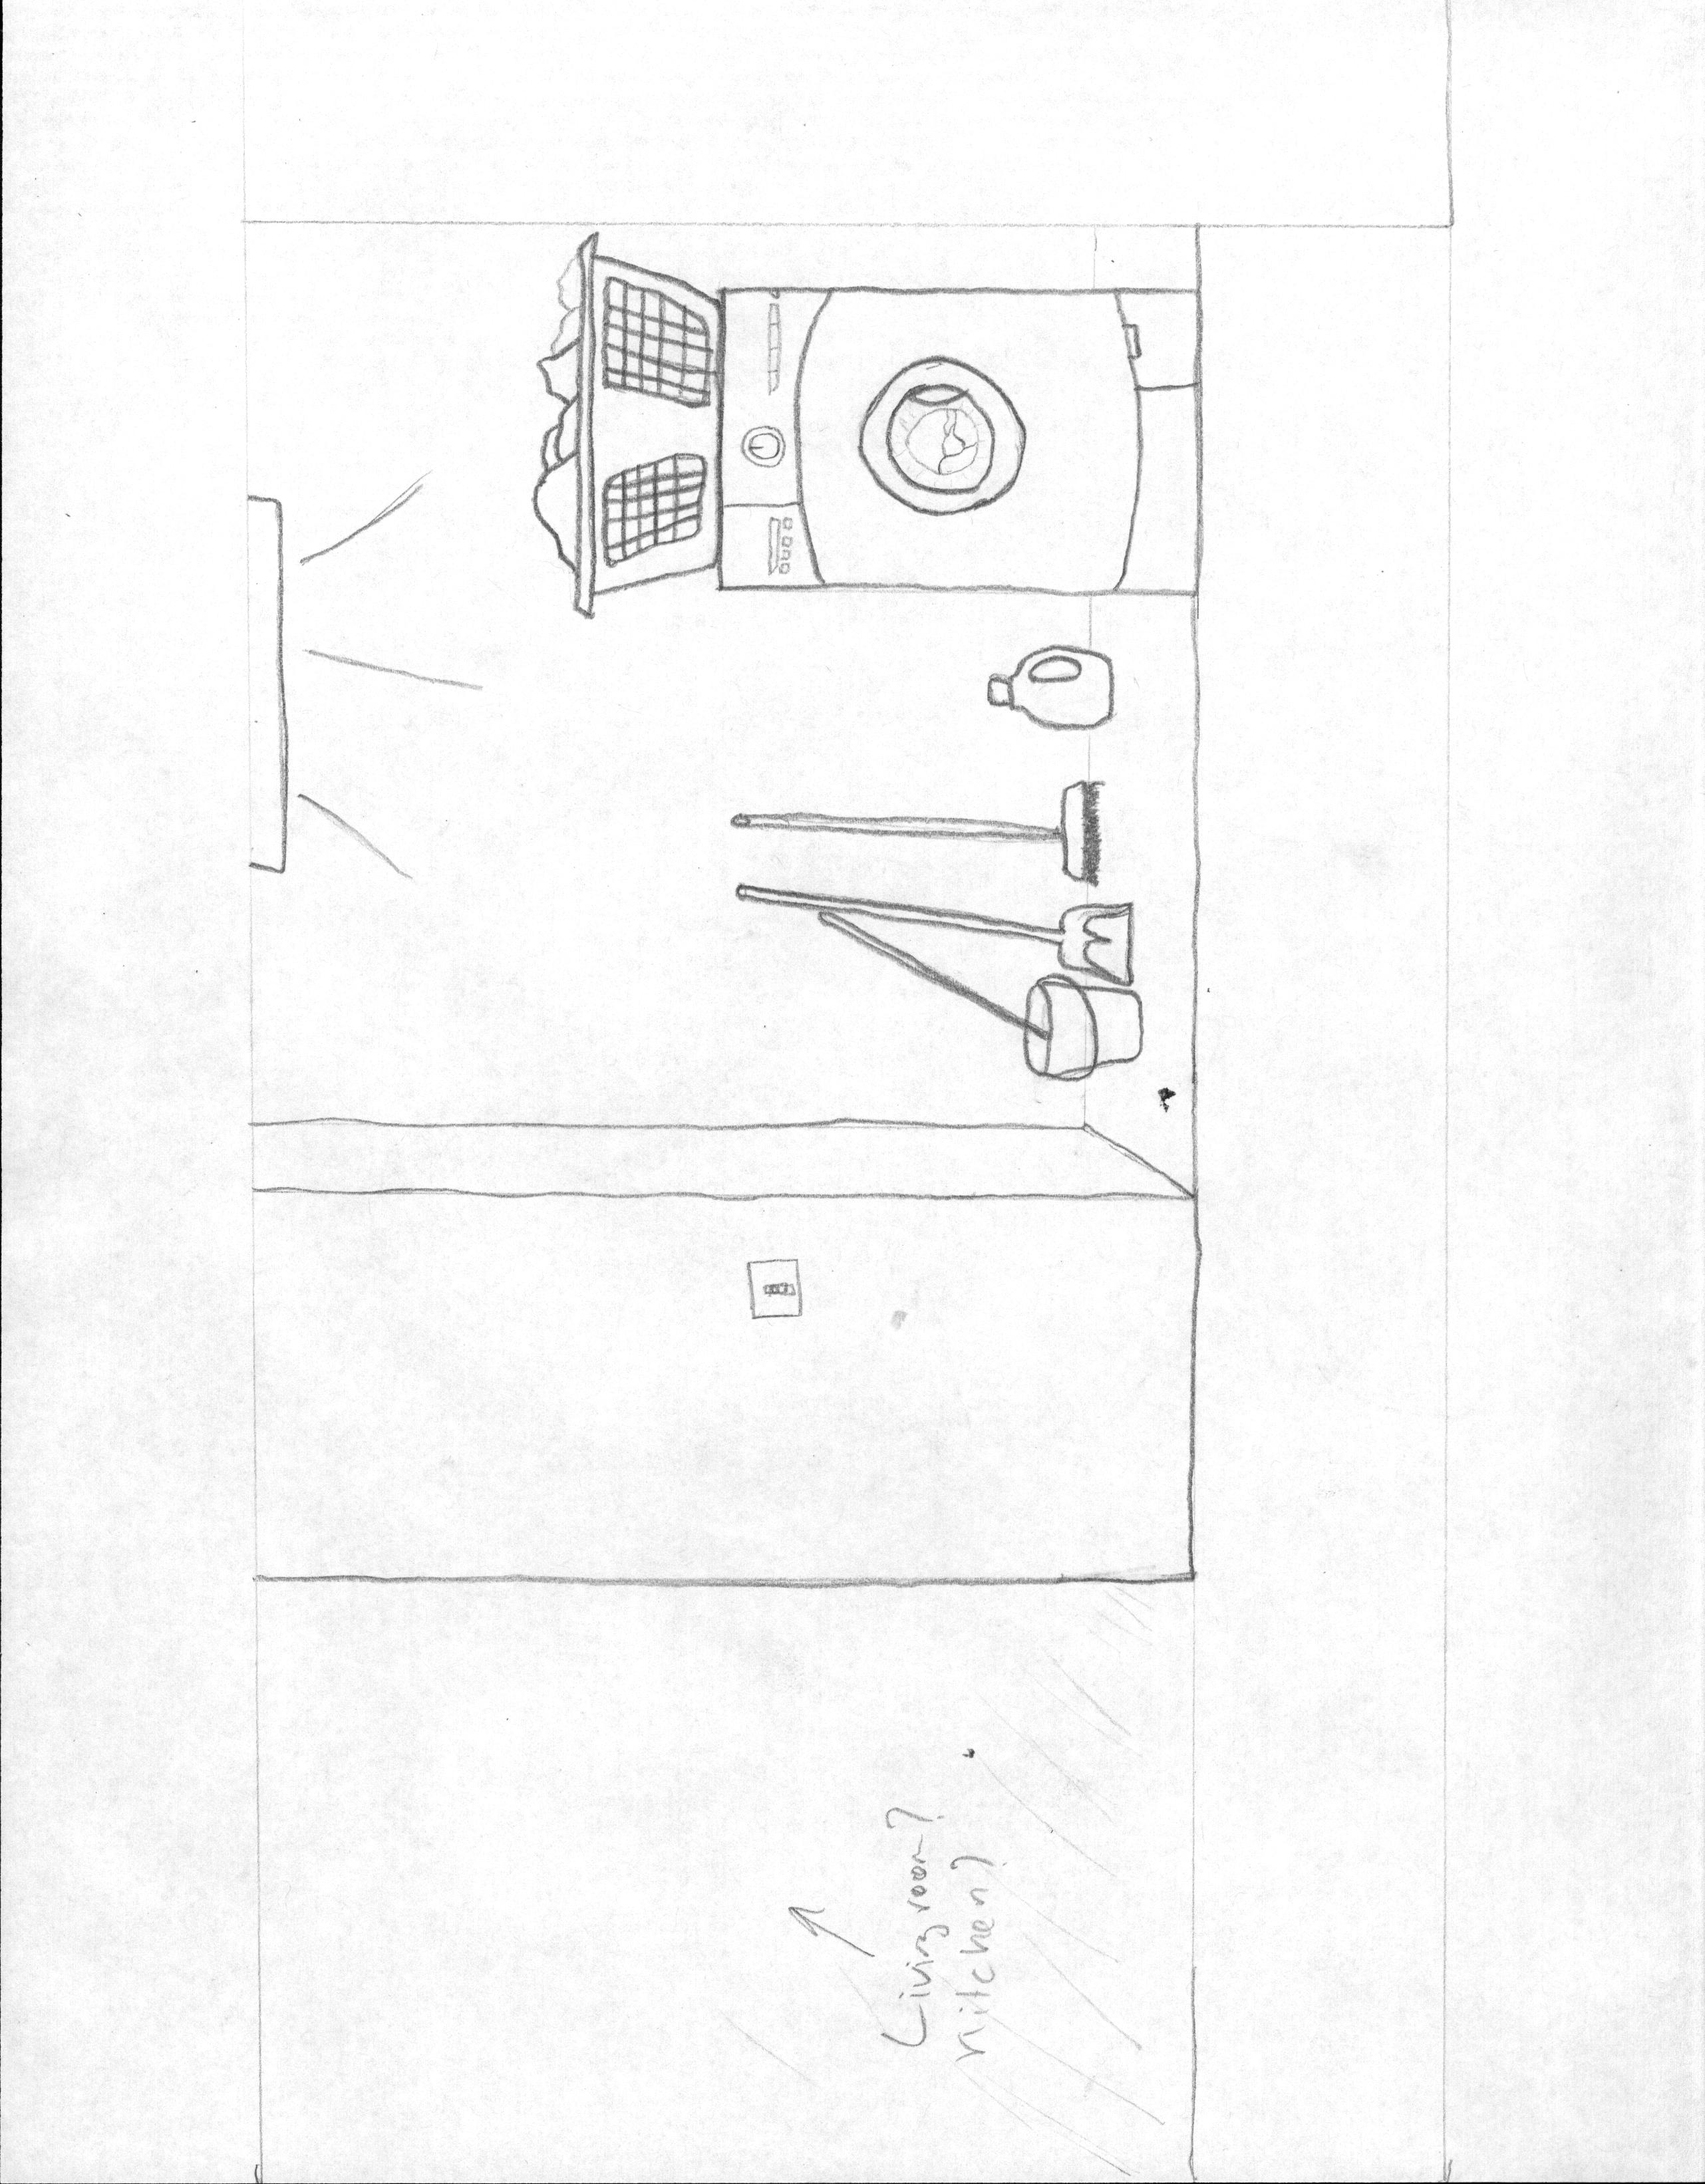 Living room?
Kitchen?